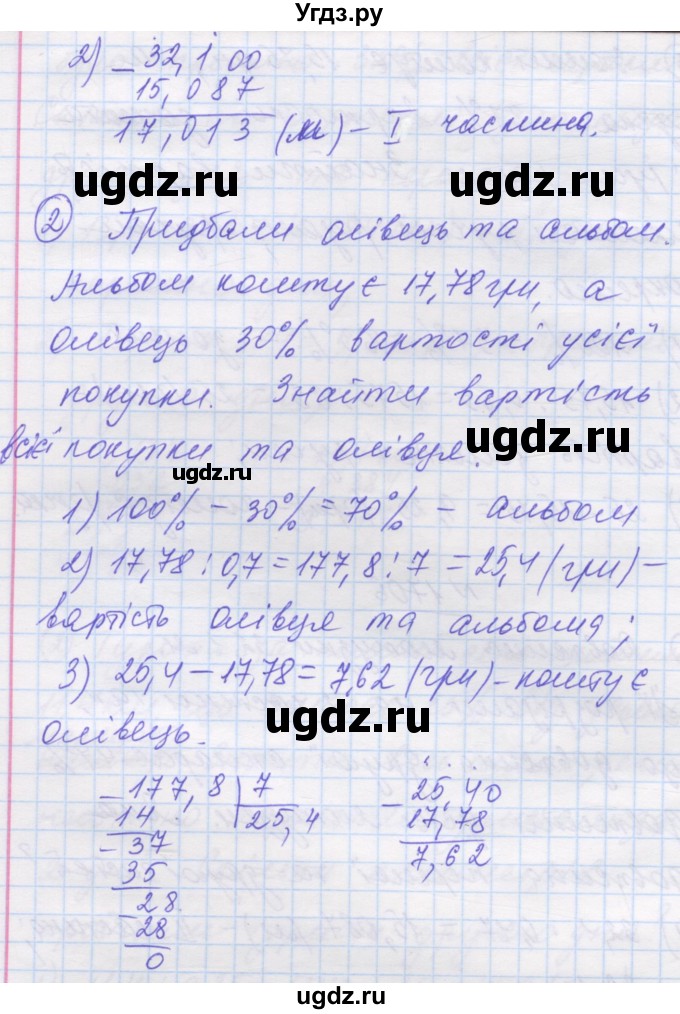 Угдз.ру
2) – 32,100
15,087
17,013 (м) – I частина.
ugdz.ru ugdz.ru
2 Придбали олівець та альбом.
Альбом коштує 17,78 грн, а
олівець 30% вартості усієї
покупки. Знайти вартість
ugdz.ru
всієї покупки та олівця.
ugdz.ru
1) 100% – 30% = 70% – альбом
2) 17,78 : 0,7 = 177,8 : 7 = 25,4 (грн) –
вартість олівця та альбома;
3) 25,4 – 17,78 = 7,62 (грн) – коштує
ugdz.ru
олівець.
– 177,8 7
14 25,4
– 37
35
– 28
28
0
– 25,40
17,78
7,62
ugdz.ru ugdz.ru
ugdz.ru